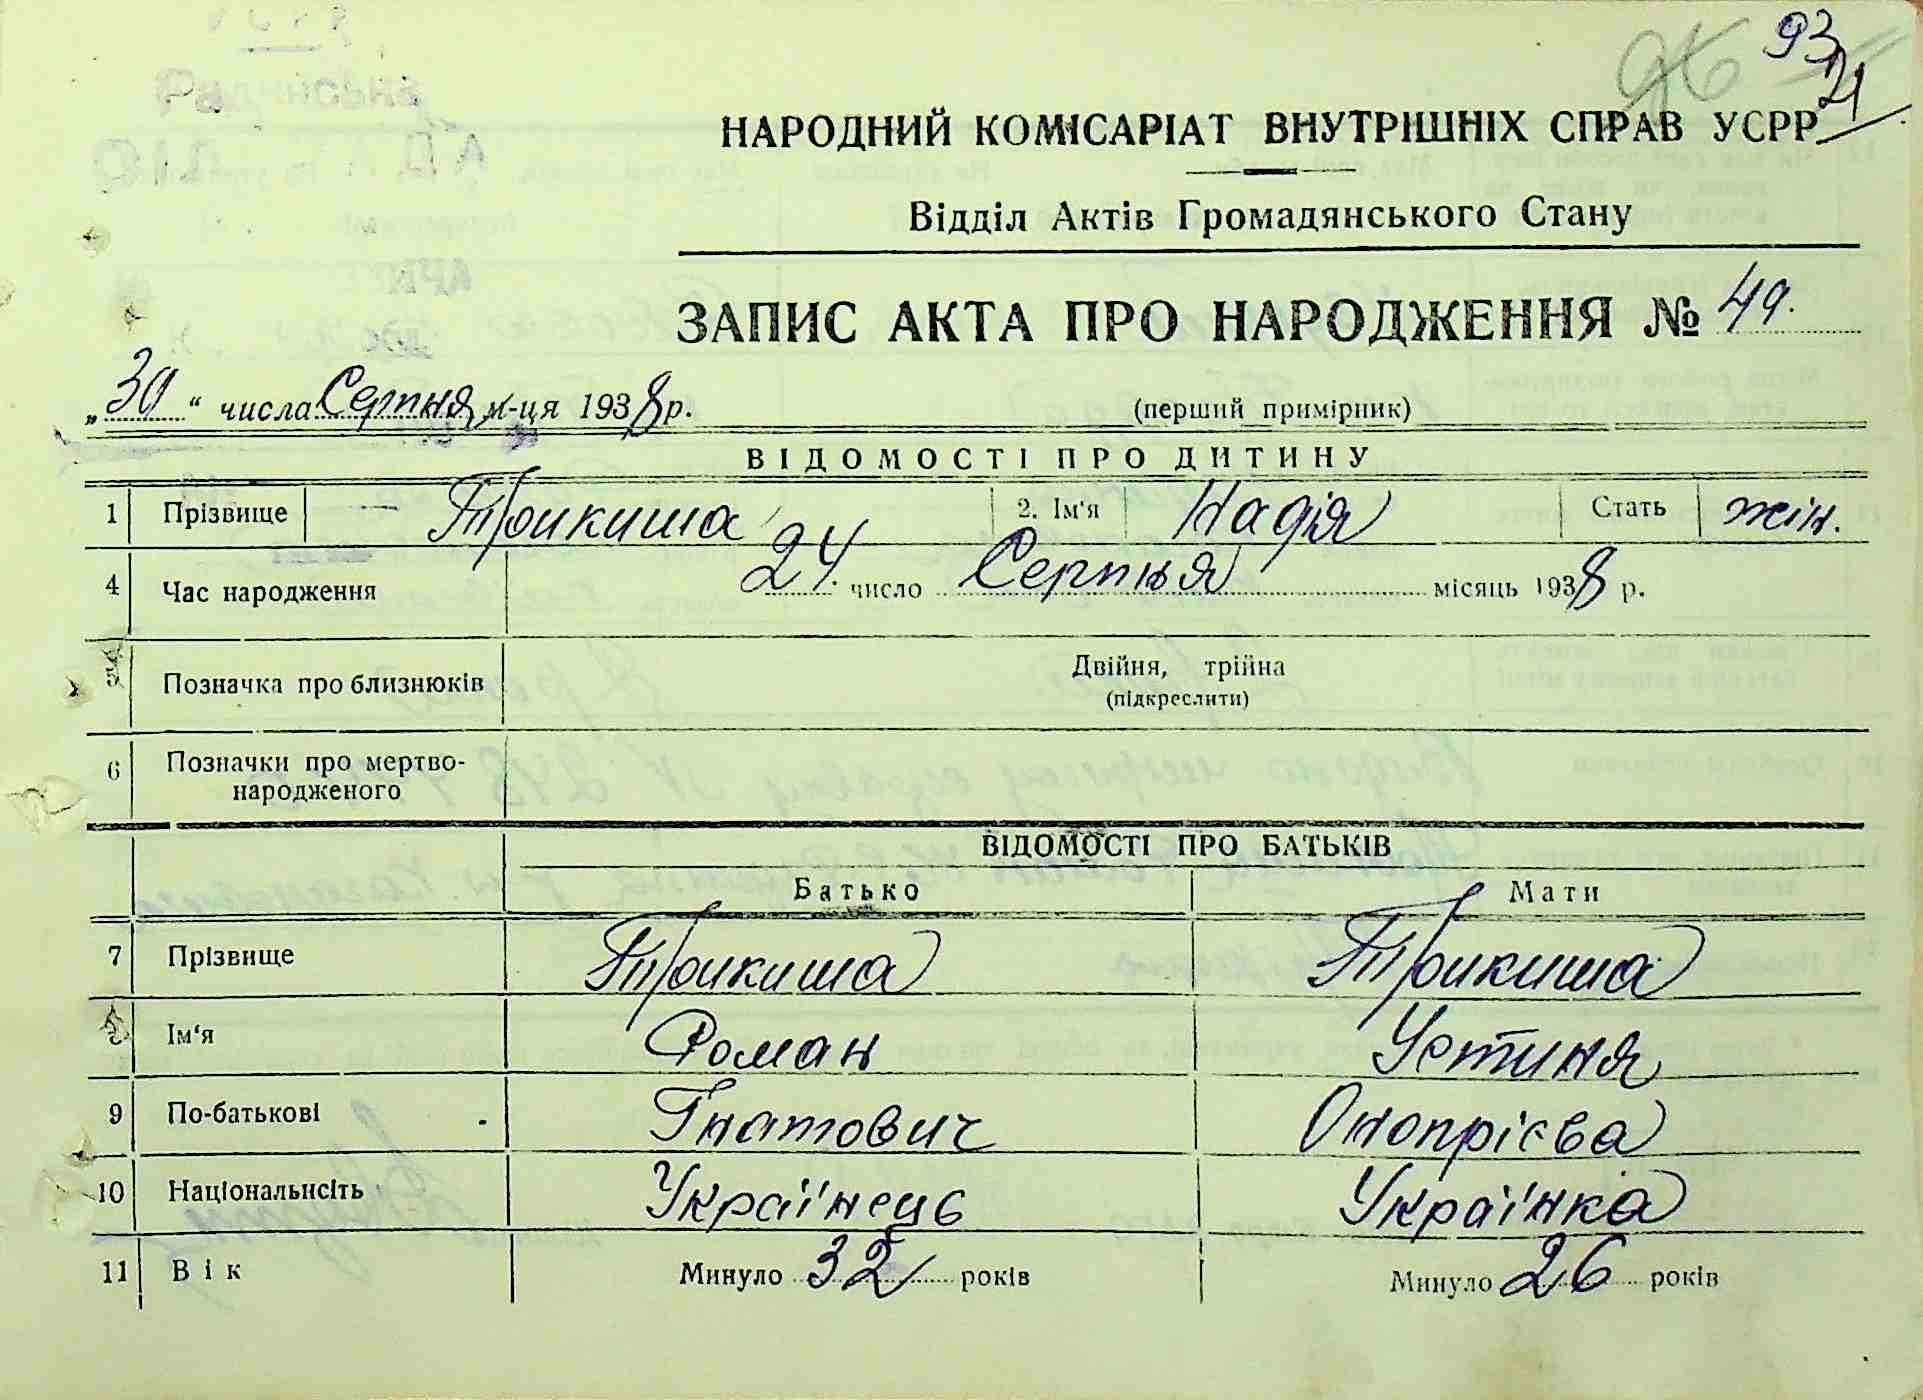 96 93
21
НАРОДНИЙ КОМІСАРІАТ ВНУТРІШНІХ СПРАВ УСРР
Відділ Актів Громадянського Стану
ЗАПИС АКТА ПРО НАРОДЖЕННЯ № 49.
„30“ числа Серпня м-ця 1938 р. (перший примірник)
ВІДОМОСТІ ПРО ДИТИНУ
1 Прізвище Трикиша 2. Ім'я Надія Стать жін.
4 Час народження 24. число Серпня місяць 1938 р.
5 Позначка про близнюків Двійня, трійна
(підкреслити)
6 Позначки про мертво-
народженого
ВІДОМОСТІ ПРО БАТЬКІВ
Батько Мати
7 Прізвище Трикиша Трикиша
Ім'я Роман Устиня
9 По-батькові Гнатович Онопрієва
10 Національність Українець Українка
11 Вік Минуло 32 років Минуло 26 років